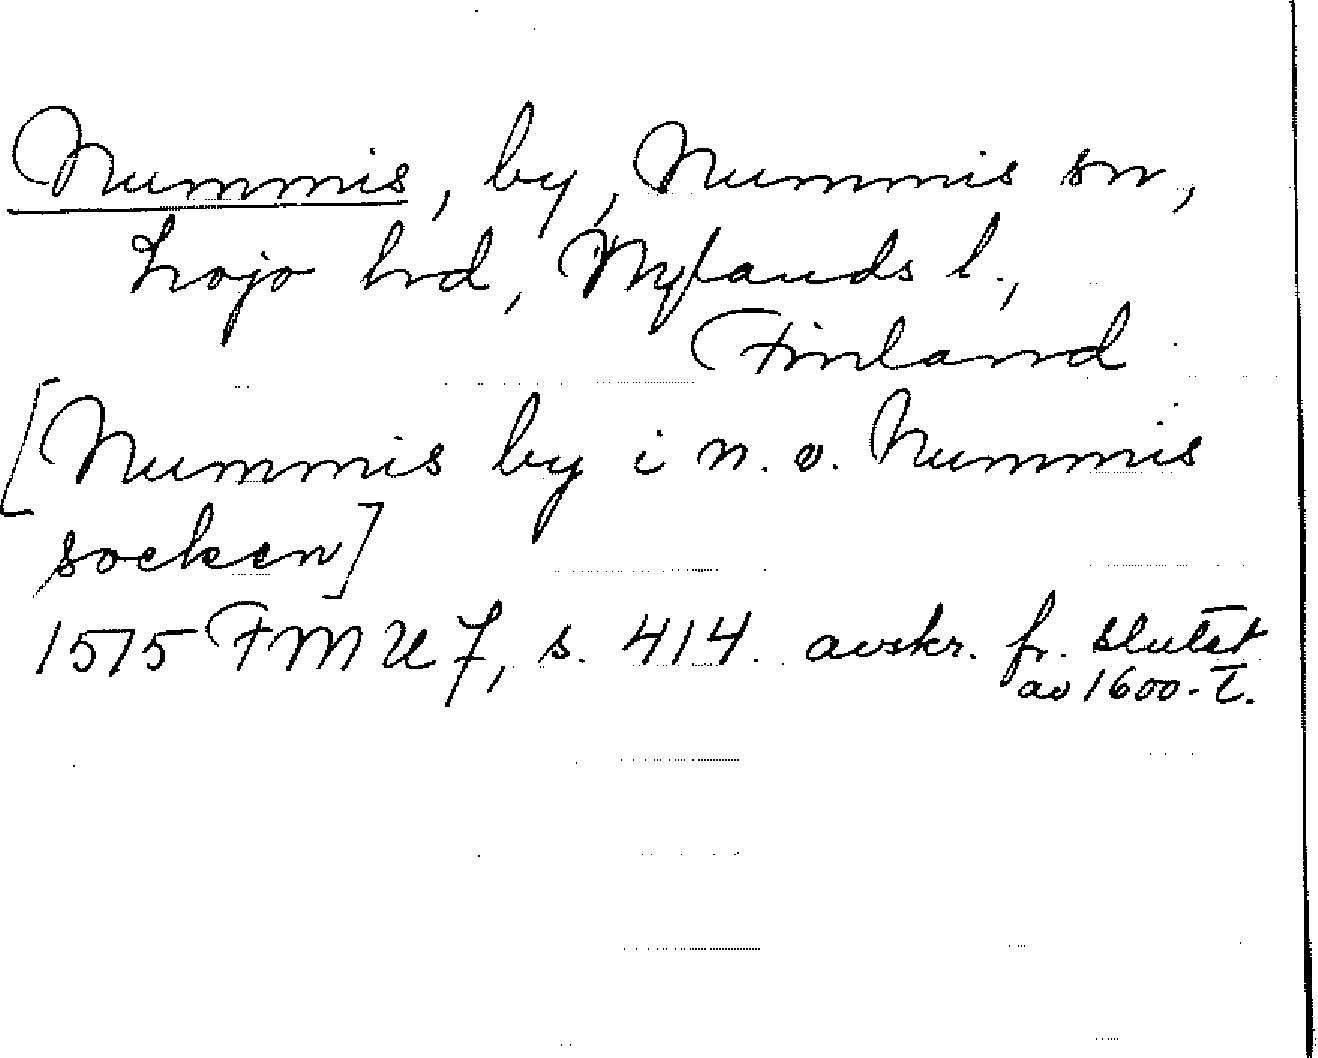 Nummis, by, Nummis sn,
Lojo hrd, Nylands l.,
Finland
[Nummis by i n.v. Nummis
socken]
1515 FMU 7, s. 414. avskr. fr. slutet
av 1600-t.